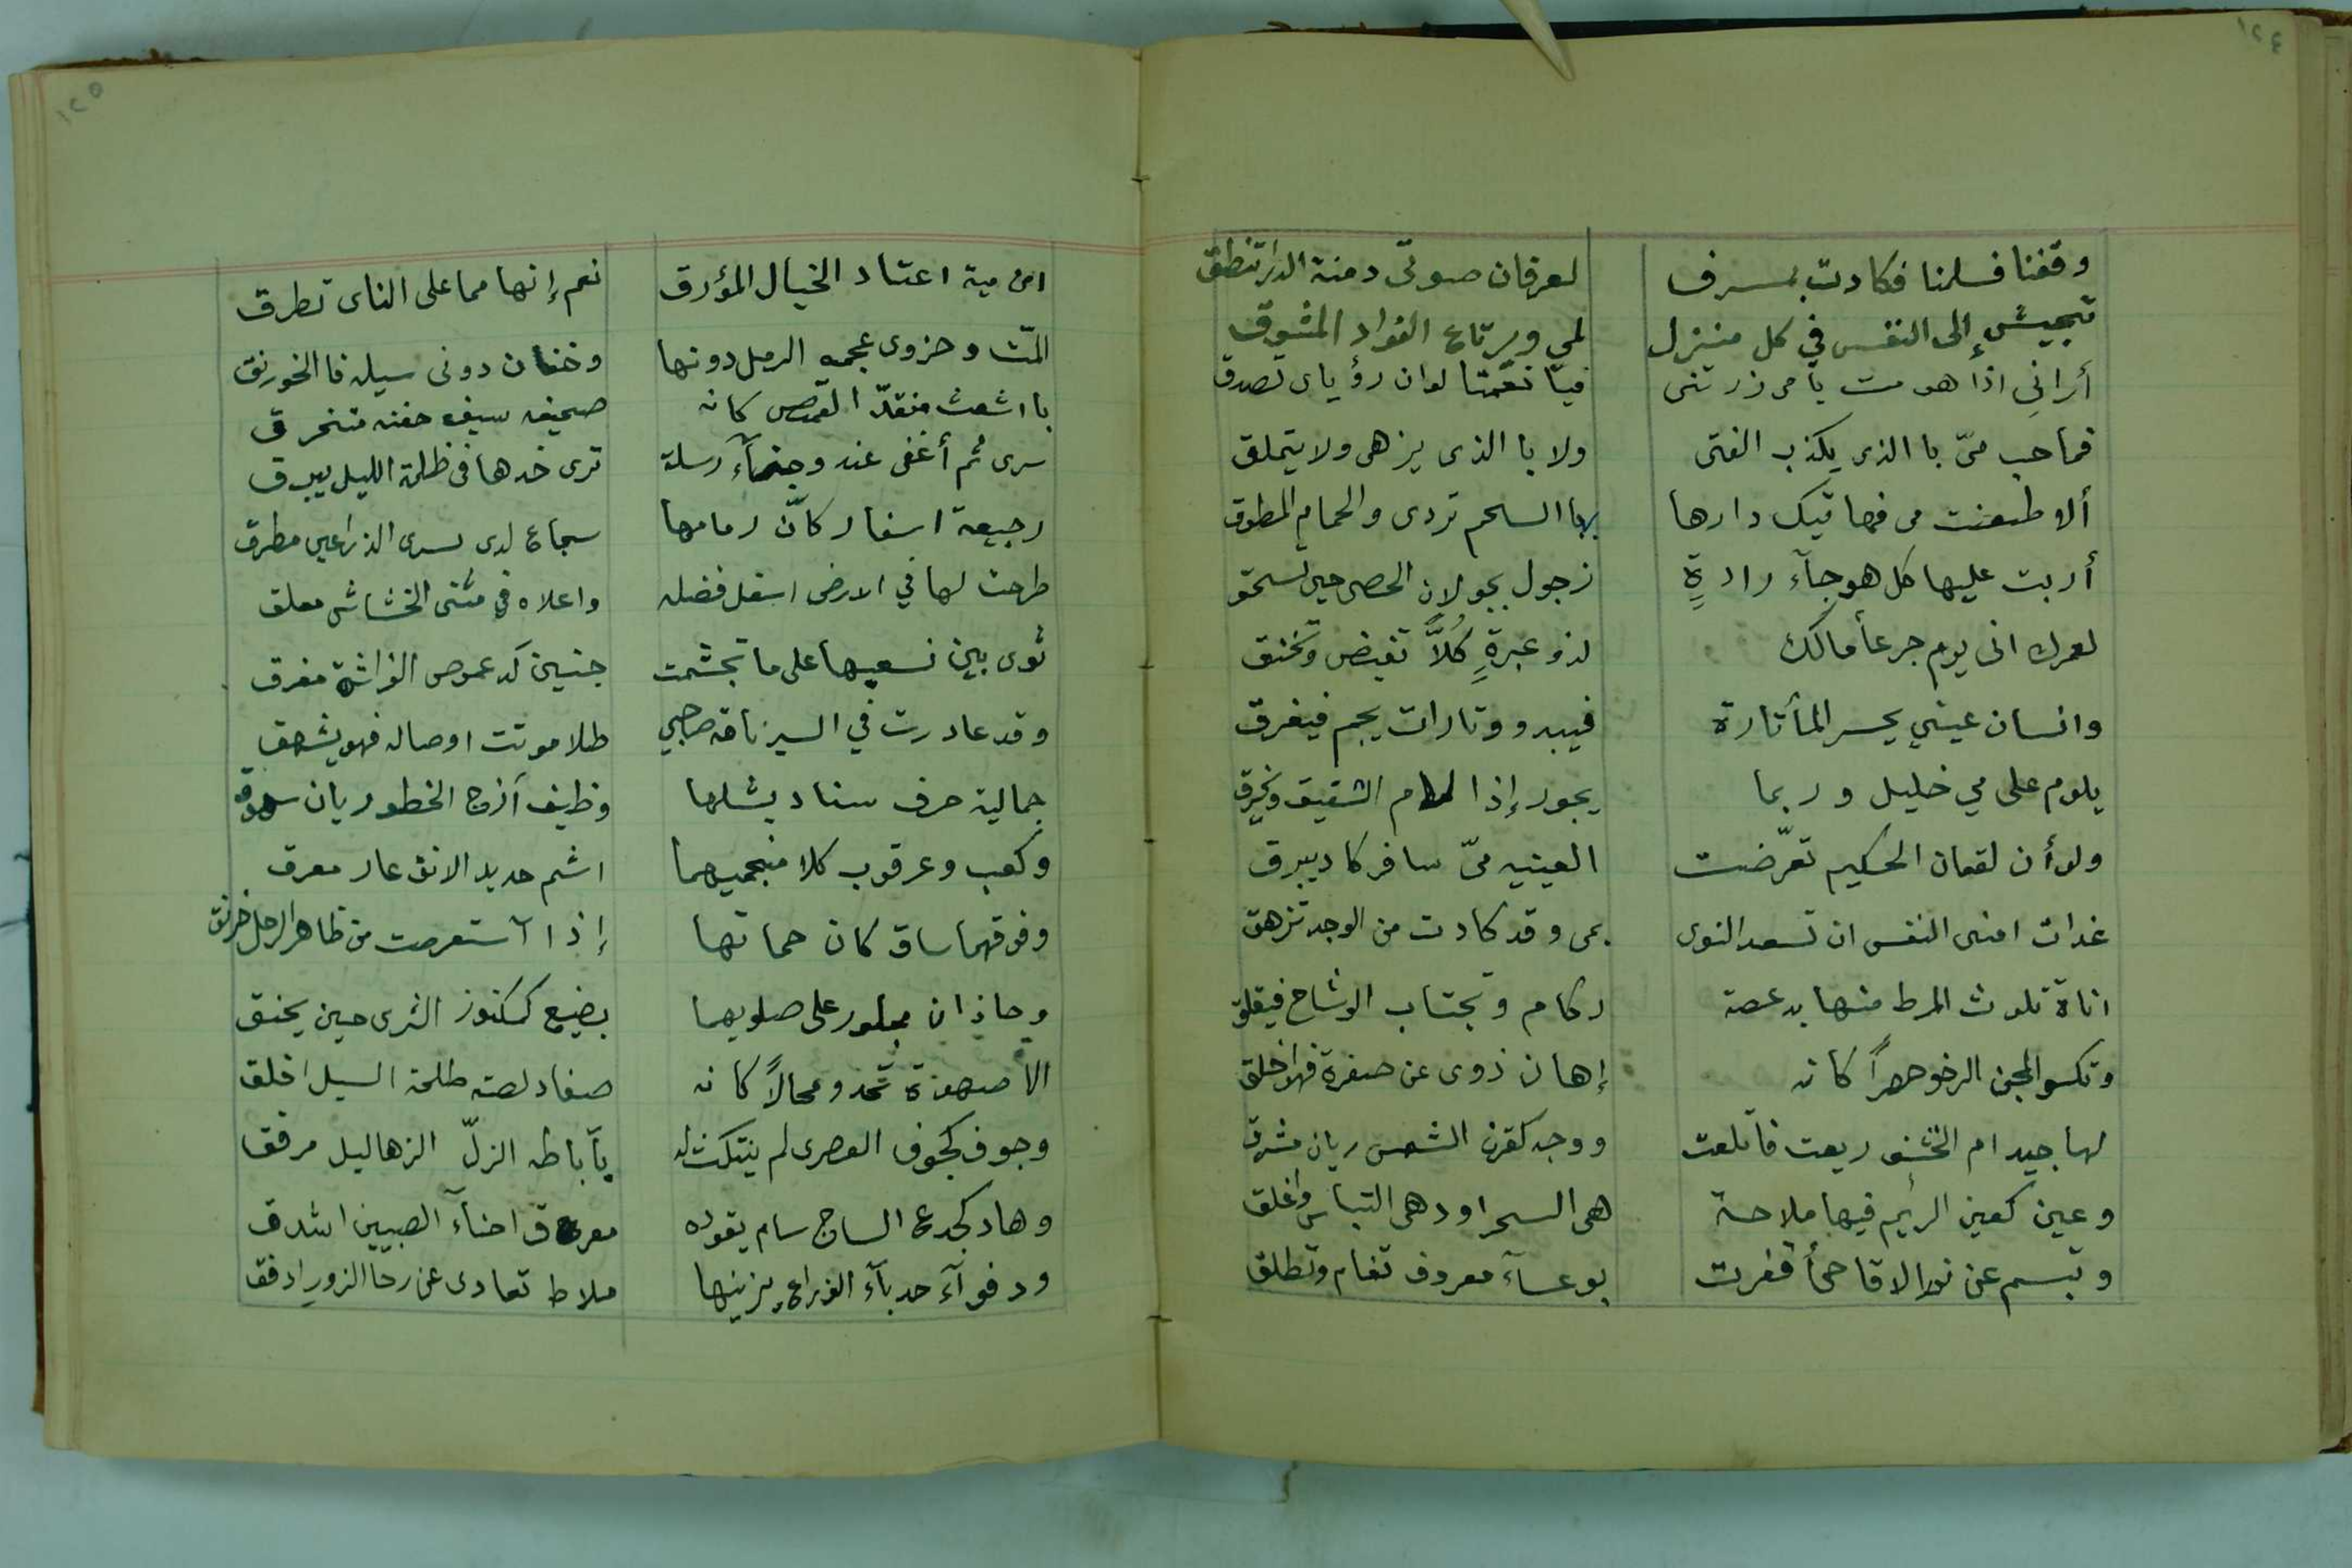 ١٢٤
وقفنا فسلمنا فكادت بمسرف لعرفان صوتى دمنة الدار تنطق
تجيش إلى النفس في كل منزل لمي ويرتاع الفواد المشوق
أرانى اذا هومت يا مى زرتنى فيا نعمتا لوان رؤياى تصدق
فما حب مىّ با الذى يكذب الفتى ولا با الذى يزهى ولا يتملق
ألا ظعنت مى فهاتيك دارها بها السحم تردى والحمام المطوق
أربت عليها كل هوجآء رادةٍ زجول بجولان الحصى حين تسحق
لعمرك انى يوم جرعأ مالك لذو عبرةٍ كُلاًّ تفيض وتخنق
وانسان عيني يحسر المأ تارة فيبدو وتارات يجم فيغرق
يلوم على مي خليل وربما يجور إذا لام الشقيق ويخرق
ولوأن لقمان الحكيم تعرّضت العينيه مىّ سافر كاد يبرق
غدات امنى النفس ان تسعد النوى بمى وقد كادت من الوجد تزهق
اناة تلوث المرط منها بدعصة ركام وتجتاب الوشاح فيقلق
وتكسو المجن الرخو خصراً كانه إهان ذوى عن صفرة فهو اخلق
لها جيد ام الخشف ريعت فاتلعت ووجه كقرن الشمس ريان مشرق
وعين كعين الرئيم فيها ملاحة هى السحر اودهى التباس واغلق
وتبسم عن نور الاقاحى أقفرت بوعسآء معروف تغام وتطلق
١٢٥
امن مية اعتاد الخيال المؤرق نعم إنها مما على الناى تطرق
المّت وحزوى عجمه الرمل دونها وخفان دونى سيله فا الخورنق
با اشعث منقدّ القميص كانه صحيفه سيف جفنه متخرق
سرى ثم أغفى عند وجنآء رسلة ترى خدها فى ظلمة الليل يبرق
رجيعة اسفار كأن زمامها سجاع لدى يسرى الذراعين مطرق
طرحت لها في الارض اسفل فضله واعلاه في مثنى الخشاش معلق
ثوى بين نسعيها على ما تجشمت جنين كدعموص الفراشة مغرق
وقد غادرت في السير ناقه صاحبي طلا موتت اوصاله فهو يشهق
جمالية حرف سناد يشلها وظيف آزج الخطو ريان سهوق
وكعب وعرقوب كلا منجميهما اشم حديد الانف عار معرق
وفوقهما ساق كان حماتها إذا آستعرصت من ظاهر الرجل خرنق
وحاذان مجلور على صلويهما بضيع كمكنوز الثرى حين يخنق
الا صهوة تحدو محالاً كانه صفا دلصته طلحة السيل اخلق
وجوف كجوف القصرى لم ينتكث له بآباطه الزلّ الزهاليل مرفق
وهاد كجدع الساج سام يقوده معرق احنآء الصبيين اشدق
ودفوآء حدبآء الذراع يزينها ملاط تعادى عن رحا الزور ادفق